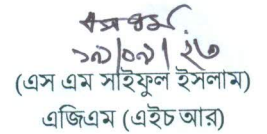 ১৯/০৯/২৩
(এস এম সাইফুল ইসলাম)
এজিএম (এইচ আর)